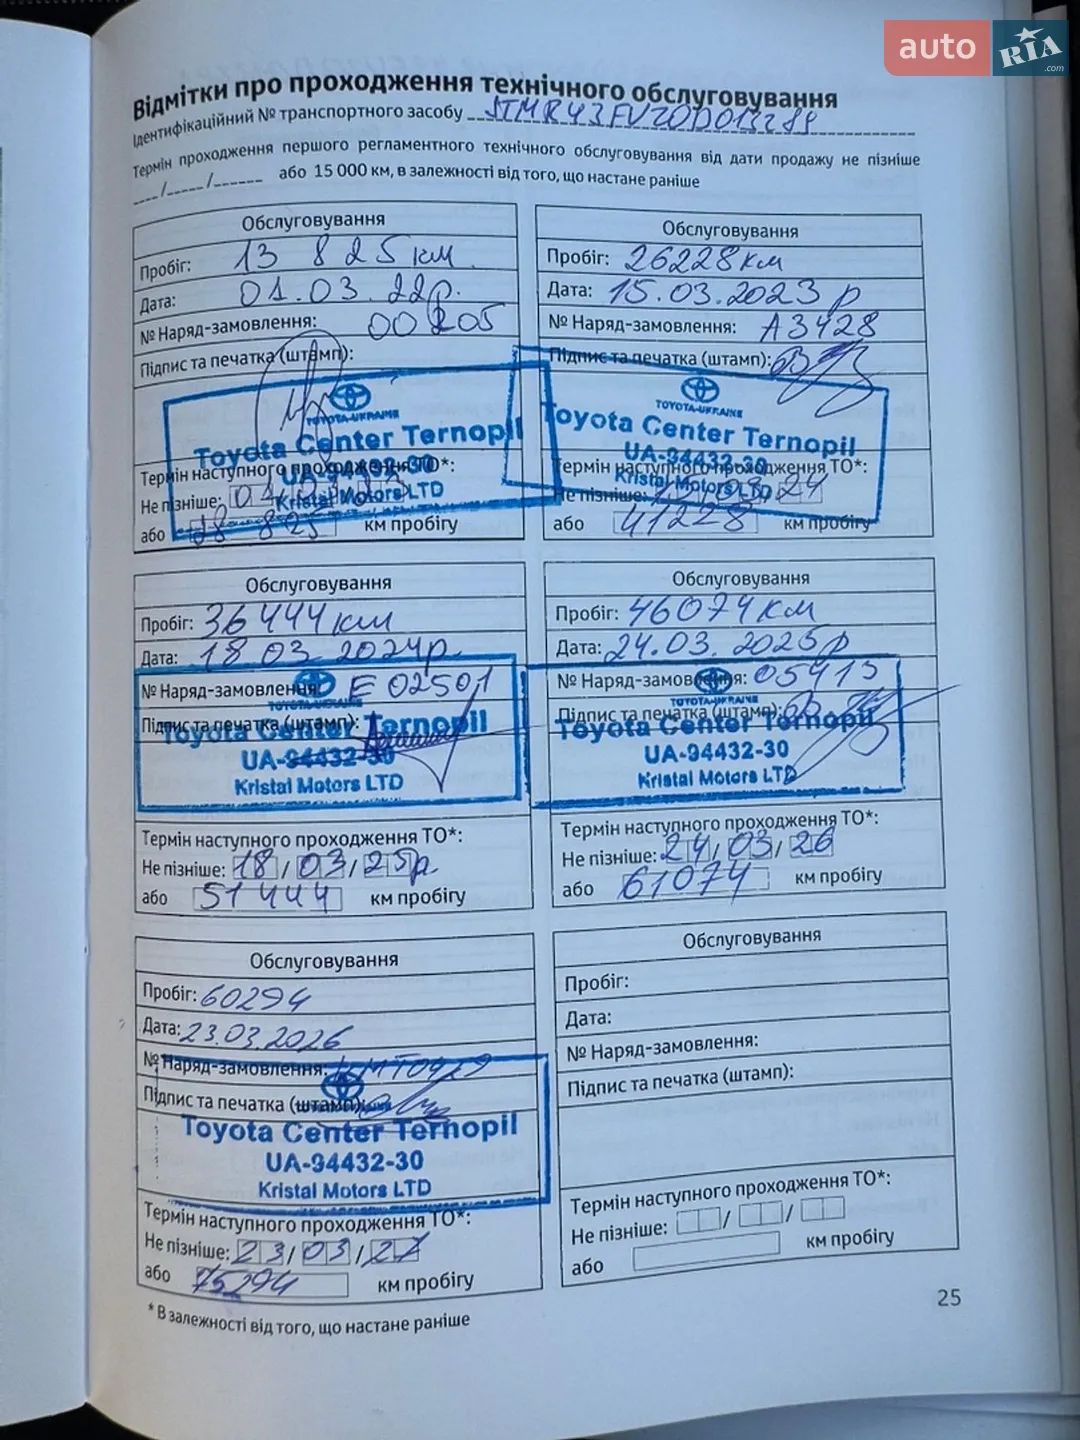 auto RIA .com
Відмітки про проходження технічного обслуговування
Ідентифікаційний № транспортного засобу
Термін проходження першого регламентного технічного обслуговування від дати продажу не пізніше
__/__/__ або 15 000 км, в залежності від того, що настане раніше
Обслуговування
Пробіг: 13 825 км
Дата: 01.03.22р.
№ Наряд-замовлення: 00205
Підпис та печатка (штамп):
TOYOTA-UKRAINE
Toyota Center Ternopil
UA-94432-30
Kristal Motors LTD
Термін наступного проходження ТО*:
Не пізніше:
або 825 км пробігу
Обслуговування
Пробіг: 26228 км
Дата: 15.03.2023 р
№ Наряд-замовлення: А3428
Підпис та печатка (штамп):
TOYOTA-UKRAINE
Toyota Center Ternopil
UA-94432-30
Kristal Motors LTD
Термін наступного проходження ТО*:
Не пізніше: 03 24
або 41228 км пробігу
Обслуговування
Пробіг: 36444 км
Дата: 18.03.2024р.
№ Наряд-замовлення: Е 02501
Підпис та печатка (штамп):
TOYOTA-UKRAINE
Toyota Center Ternopil
UA-94432-30
Kristal Motors LTD
Термін наступного проходження ТО*:
Не пізніше: 18/03/25р.
або 51444 км пробігу
Обслуговування
Пробіг: 46074 км
Дата: 24.03.2025р
№ Наряд-замовлення: 05413
Підпис та печатка (штамп):
TOYOTA-UKRAINE
Toyota Center Ternopil
UA-94432-30
Kristal Motors LTD
Термін наступного проходження ТО*:
Не пізніше: 24/03/26
або 61074 км пробігу
Обслуговування
Пробіг: 60294
Дата: 23.03.2026
№ Наряд-замовлення:
Підпис та печатка (штамп):
Toyota Center Ternopil
UA-94432-30
Kristal Motors LTD
Термін наступного проходження ТО*:
Не пізніше: 23/03/27
або 75294 км пробігу
Обслуговування
Пробіг:
Дата:
№ Наряд-замовлення:
Підпис та печатка (штамп):
Термін наступного проходження ТО*:
Не пізніше: / /
або км пробігу
* В залежності від того, що настане раніше
25